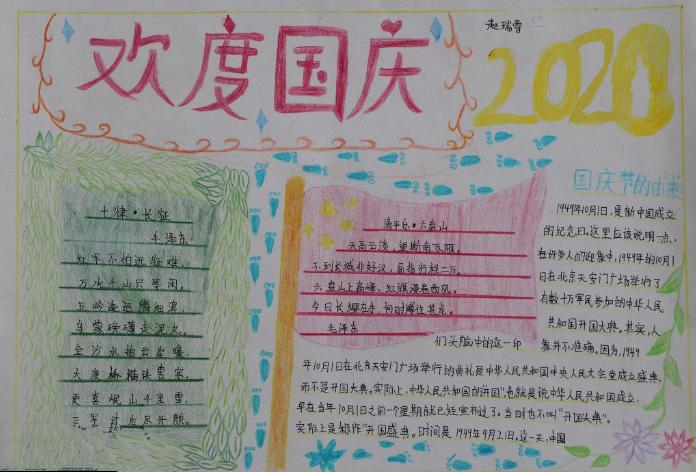 欢度国庆
赵瑞雪
2020
七律·长征
毛泽东
红军不怕远征难,
万水千山只等闲。
五岭逶迤腾细浪,
乌蒙磅礴走泥丸。
金沙水拍云崖暖,
大渡桥横铁索寒。
更喜岷山千里雪,
三军过后尽开颜。
清平乐·六盘山
天高云淡,望断南飞雁。
不到长城非好汉,屈指行程二万。
六盘山上高峰,红旗漫卷西风。
今日长缨在手,何时缚住苍龙。
毛泽东
国庆节的由来
1949年10月1日,是新中国成立
的纪念日。这里应该说明一点,
在许多人的印象中,1949年的10月1
日在北京天安门广场举行了
有数十万军民参加的中华人民
共和国开国大典。其实,人
们头脑中的这一印
象并不准确。因为,1949
年10月1日在北京天安门广场举行的典礼是中华人民共和国中央人民政府成立盛典,
而不是开国大典。实际上,中华人民共和国的"开国"也就是说中华人民共和国成立,
早在当年10月1日之前一个星期就已经宣布过了。当时也不叫"开国大典"。
实际上是称作"开国盛典"。时间是1949年9月21日。这一天,中国